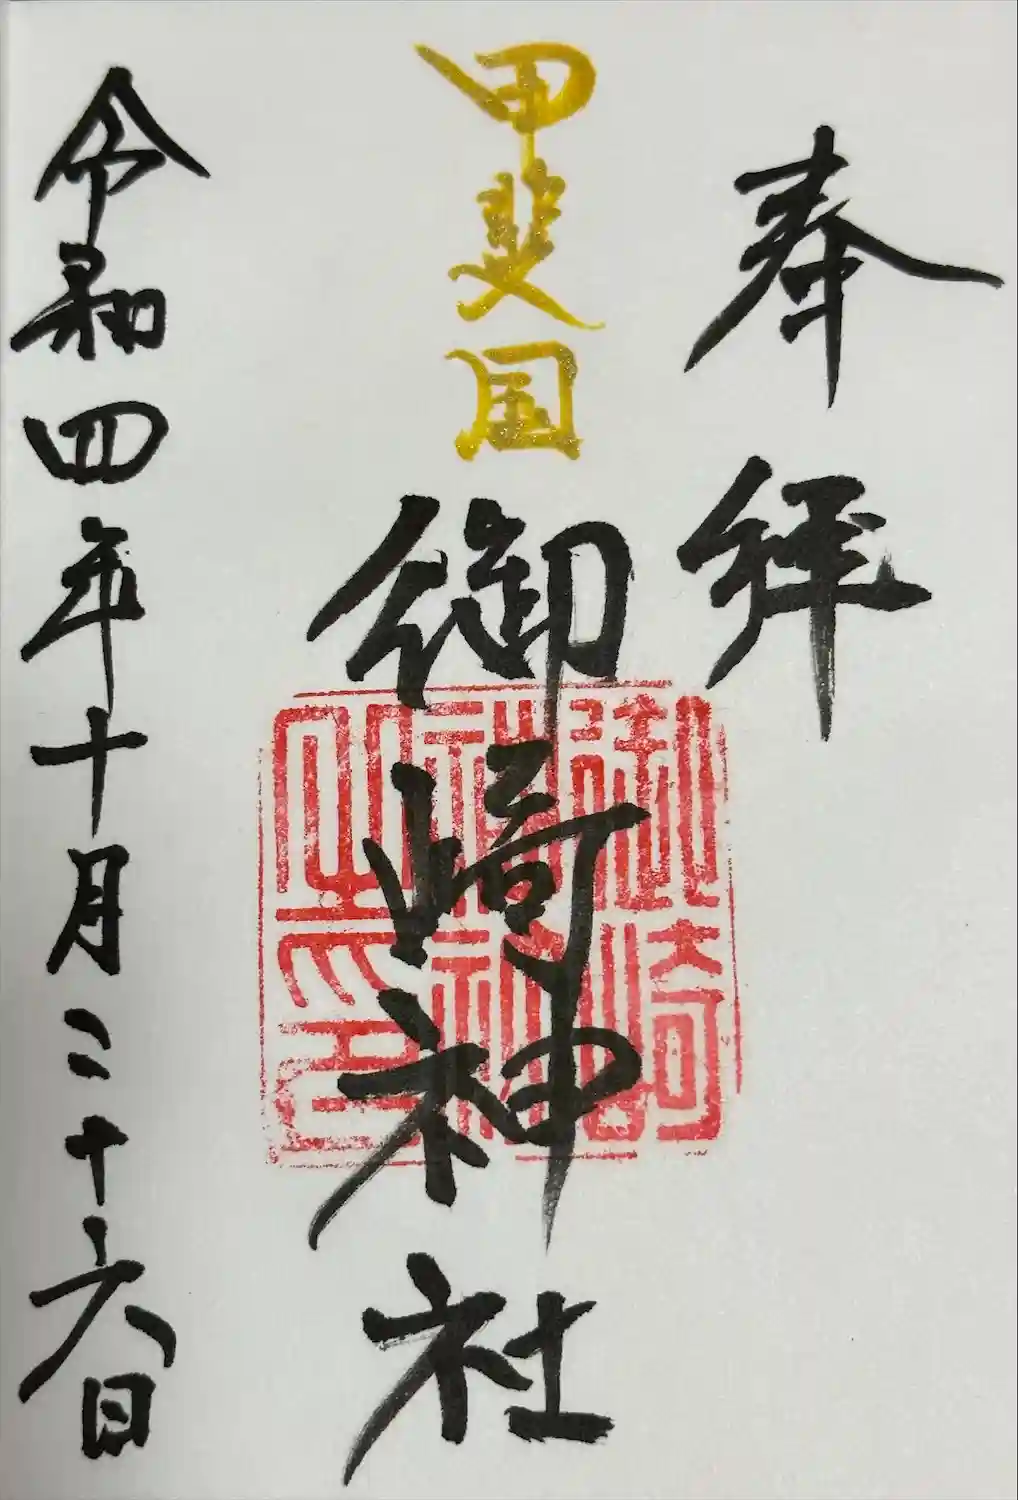 奉拝
甲斐国
御崎神社
御崎
神社
之印
令和四年十月二十六日